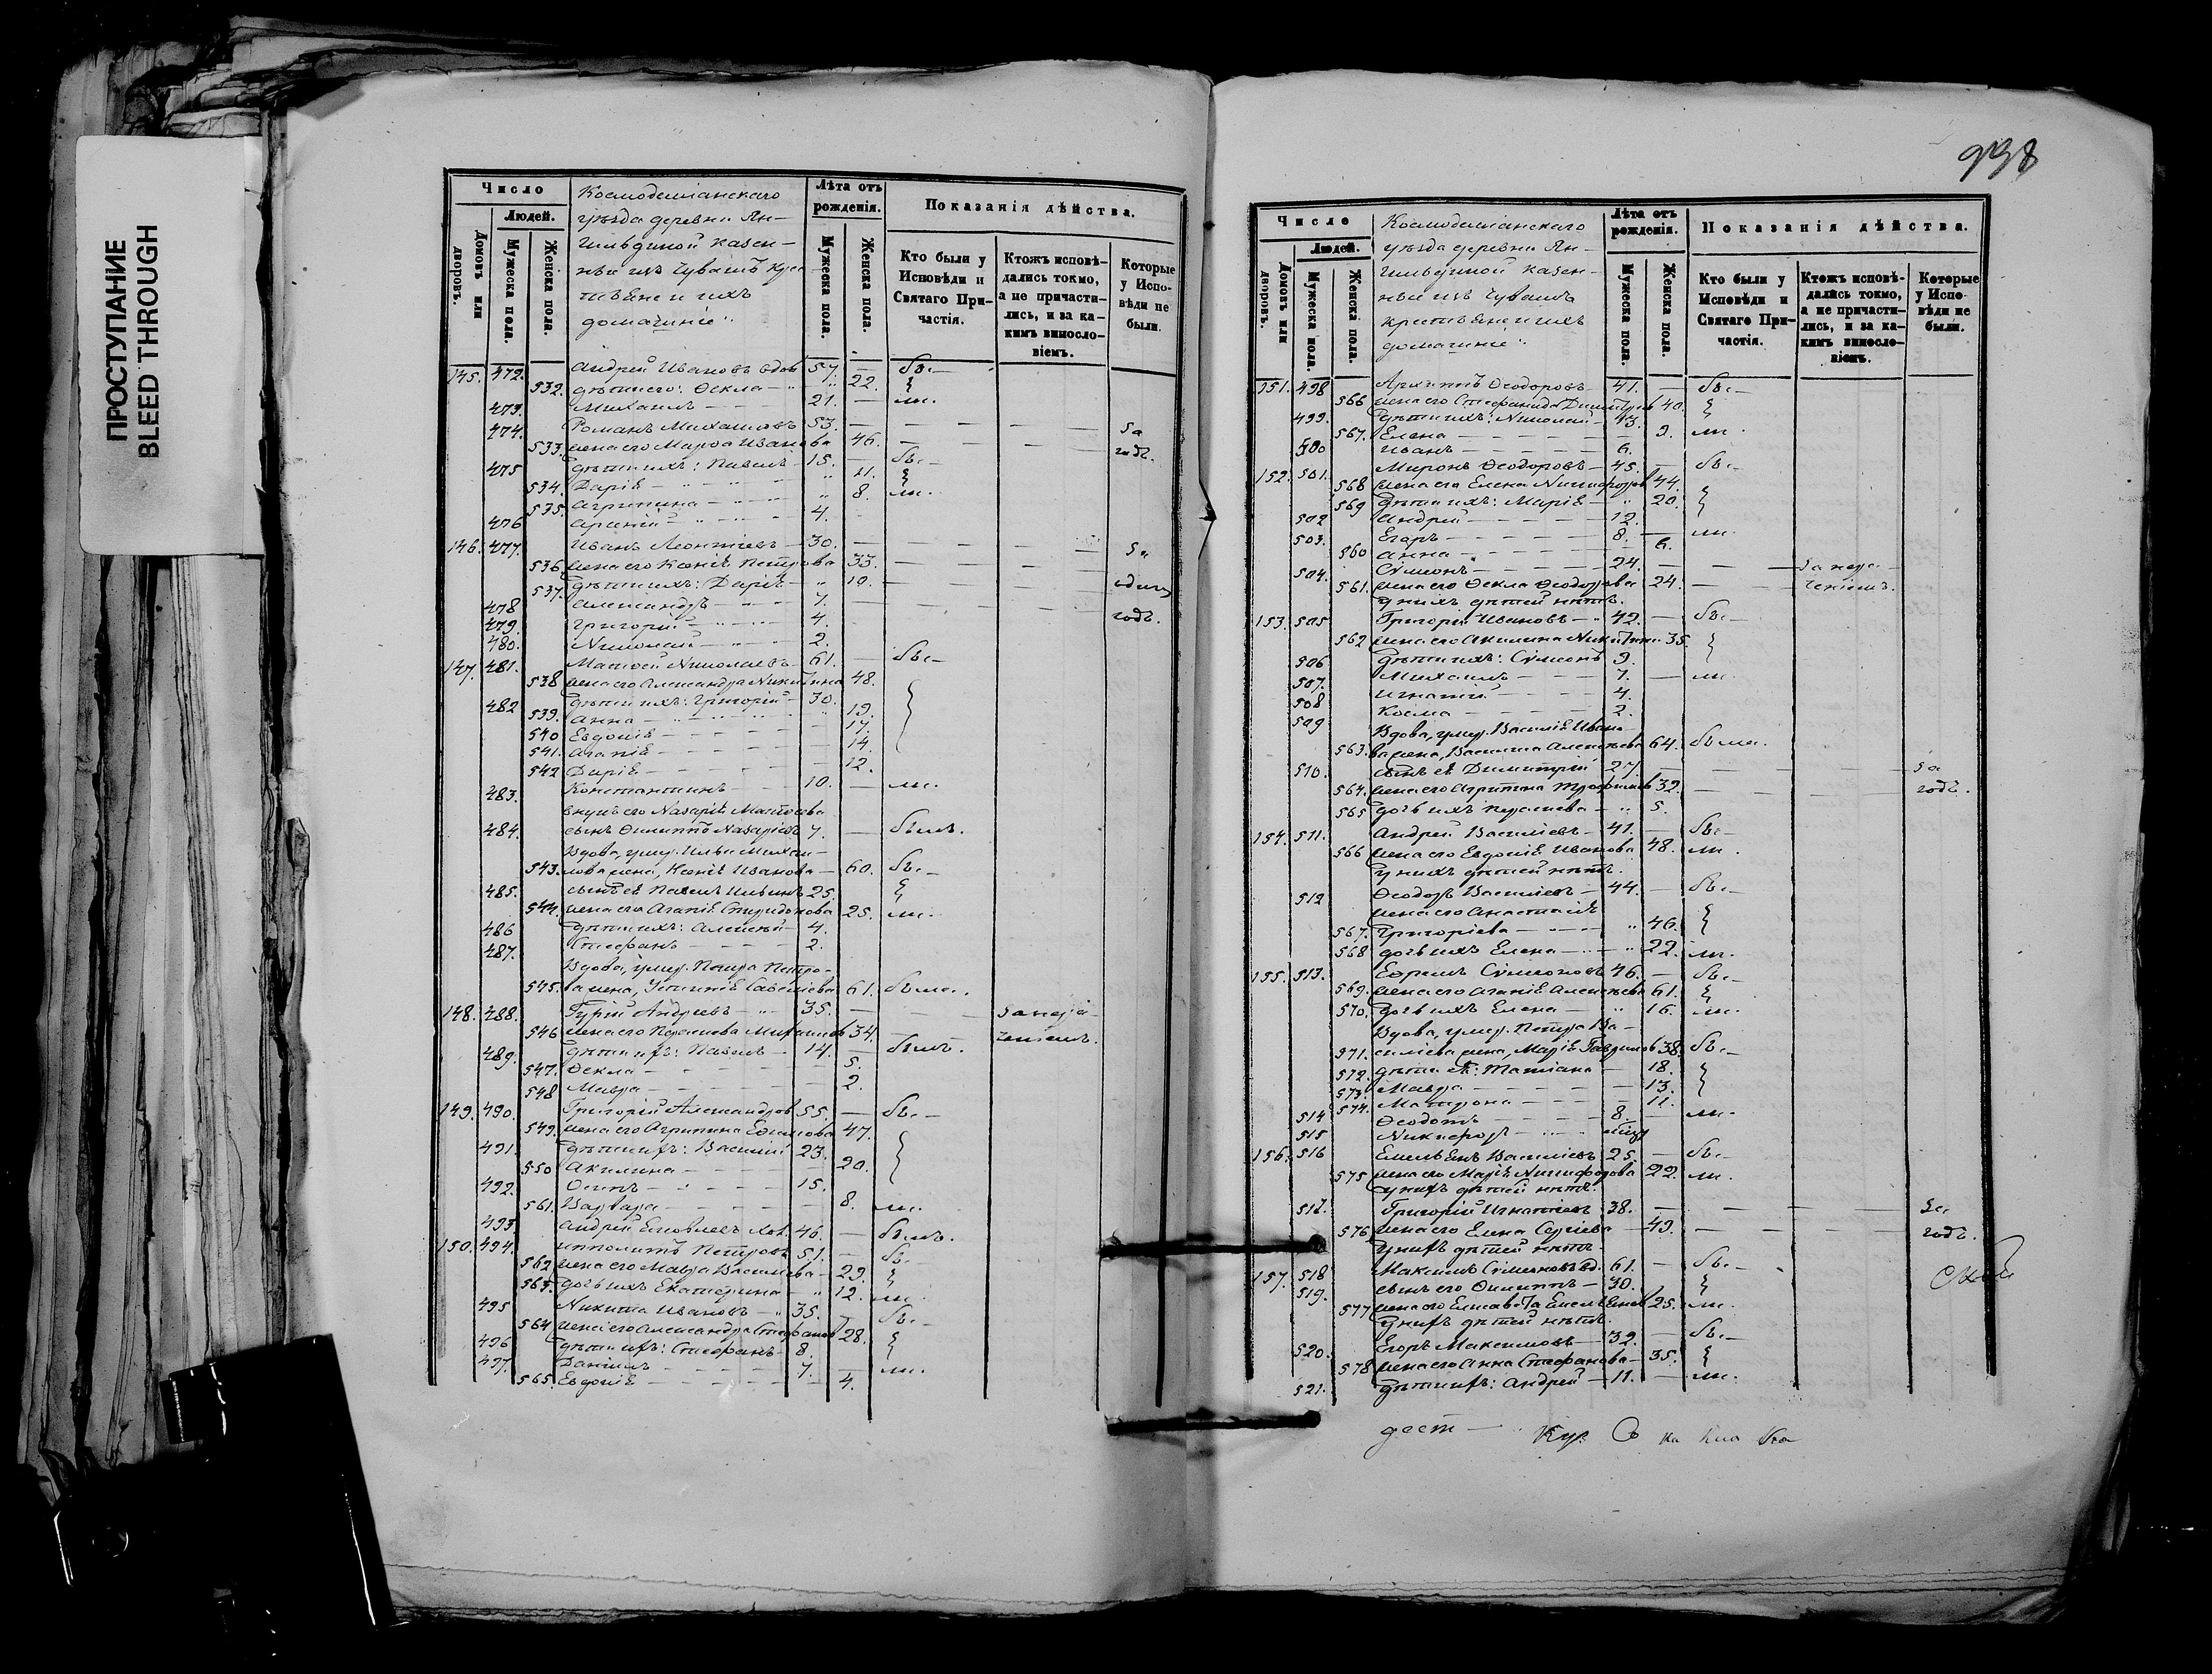 ПРОСТУПАНИЕ
BLEED THROUGH
Число
Людей.
Домовъ или дворовъ.
Мужеска пола.
Женска пола.
Космодеміанскаго
уѣзда деревни Ян-
гильдиной казен-
ные изъ Чувашъ крес-
тьяне и ихъ
домашніе
Лѣта отъ рожденія.
Мужеска пола.
Женска пола.
Показанія дѣйства.
Кто были у Исповѣди и Святаго Причастія.
Ктожъ исповѣ-
дались токмо,
а не причасти-
лись, и за ка-
кимъ виносло-
віемъ.
Которые
у Испо-
вѣди не
были.
145. 472. Андрей Ивановъ вдов 57. — бы-
532. дѣти его: Ѳекла — 22.
473. Михаилъ — 21. — ли.
474. Романъ Михайловъ 53. — за
533. жена его Марѳа Иванова 46. — годъ.
475 дѣти ихъ: Павелъ 15. — бы-
534. Дарія — 11.
535. Агрипина — 8. ли.
476 Арсеній — 4.
146. 477. Иванъ Леонтіевъ — 30. — за
536 жена его Ксенія Петрова 33.
537. дѣти ихъ: Дарія — 10. — одинъ
478 Александръ — 7.
479. Григорій — 4. годъ.
480. Николай — 2.
147. 481. Матѳей Николаевъ 61. — бы-
538 жена его Александра Никитина 48.
482 дѣти ихъ: Григорій 30.
539. Анна — 19.
540 Евдокія — 17.
541. Агапія — 14.
542 Дарія — 12.
483. Константинъ — 10. — ли.
внукъ его Назарія Матѳеева
484. сынъ Филиппъ Назаріевъ 7. — былъ.
Вдова, умер. Ильи Михай-
543. лова жена, Ксенія Иванова 60. бы-
485. сынъ ея Павелъ Ильинъ 25
544. жена его Агапія Спиридонова 25. ли.
486 дѣти ихъ: Алексѣй 4.
487. Стефанъ — 2.
Вдова, умер. Петра Петро-
545. ва жена, Устинія Савельева 61. была.
148. 488. Гурій Андреевъ — 35. — за нера-
546 жена его Парасковья Михайлов 34. — ченіемъ.
489. дѣти ихъ: Павелъ — 14. — былъ.
547. Ѳекла — 5.
548 Мавра — 2.
149. 490. Григорій Александров 55. — бы-
549. жена его Агрипина Ефимова 47.
491. дѣти ихъ: Василій 23.
550 Акилина — 20.
492. Осипъ — 15.
561. Варвара — 8. ли.
493 Андрей Яковлевъ хол. 46. — былъ.
150. 494. Ипполитъ Петровъ 51. — бы-
562 жена его Мавра Васильева 29.
563. дочь ихъ Екатерина — 12. ли.
495 Никита Ивановъ — 35. бы-
564 жена его Александра Стефанов 28.
496 дѣти ихъ: Стефанъ 8.
497. Даніилъ — 7. — ли.
565. Евдокія — 4.
Число
Людей.
Домовъ или дворовъ.
Мужеска пола.
Женска пола.
Космодеміанскаго
уѣзда деревни Ян-
гильдиной казен-
ные изъ Чувашъ
крестьяне и ихъ
домашніе
Лѣта отъ рожденія.
Мужеска пола.
Женска пола.
Показанія дѣйства.
Кто были у Исповѣди и Святаго Причастія.
Ктожъ исповѣ-
дались токмо,
а не причасти-
лись, и за ка-
кимъ виносло-
віемъ.
Которые
у Испо-
вѣди не
были.
151. 498 Архиппъ Ѳеодоровъ 41. — бы-
566 жена его Стефанида Димитріев 40.
499. дѣти ихъ: Николай 13.
567. Елена — 9. ли.
500 Иванъ — 6.
152. 501. Миронъ Ѳеодоровъ 45. — бы-
568 жена его Елена Никифоров 44.
569 дѣти ихъ: Марія 20.
502 Андрей — 12.
503. Егоръ — 8. — ли.
560 Анна — 6.
504. Сѵмеонъ — 24. — за нера-
561. жена его Ѳекла Ѳеодорова 24. — ченіемъ.
у нихъ дѣтей нѣтъ.
153. 505 Григорій Ивановъ 42. — бы-
562 жена его Акилина Никитина 35.
506 дѣти ихъ: Сѵмеонъ 9.
507. Михаилъ — 7. — ли.
508 Игнатій — 4.
509 Косма — 2.
Вдова, умер. Василія Ивано-
563. ва жена, Василиса Алексѣева 64. была.
510. сынъ ея Димитрій 27. — за
564. жена его Агрипина Трофимов 32. — годъ.
565 дочь ихъ Парасковья 5.
154. 511. Андрей Василіевъ 41. — бы-
566 жена его Евдокія Иванова 48. ли.
у нихъ дѣтей нѣтъ.
512 Ѳеодоръ Василіевъ 44. — бы-
жена его Анастасія
567. Григоріева — 46.
568 дочь ихъ Елена — 22. ли.
155. 513. Ефремъ Сѵмеоновъ 46. — бы-
569. жена его Агапія Алексѣева 61.
570. дочь ихъ Елена — 16. ли.
Вдова, умер. Петра Ва-
571. силіева жена, Марія Гаврилов 38. бы-
572. дѣти ея: Татіана — 18.
573. Мавра — 13.
574. Матрона — 11.
514 Ѳеодотъ — 8. ли.
515 Никифоръ —
156. 516 Емельянъ Василіевъ 25. — бы-
575 жена его Марія Никифорова 22. ли.
у нихъ дѣтей нѣтъ.
517. Григорій Игнатіевъ 38. — за
576 жена его Елена Сергіева 49. — годъ.
у нихъ дѣтей нѣтъ.
157. 518 Максимъ Сѵмеоновъ вд. 61. — бы-
519. сынъ его Филиппъ — 30.
577 жена его Елисавета Емельянов 25. ли.
у нихъ дѣтей нѣтъ.
520. Егоръ Максимовъ 32. — бы-
578 жена его Анна Стефанова 35.
521. дѣти ихъ: Андрей 11. — ли.